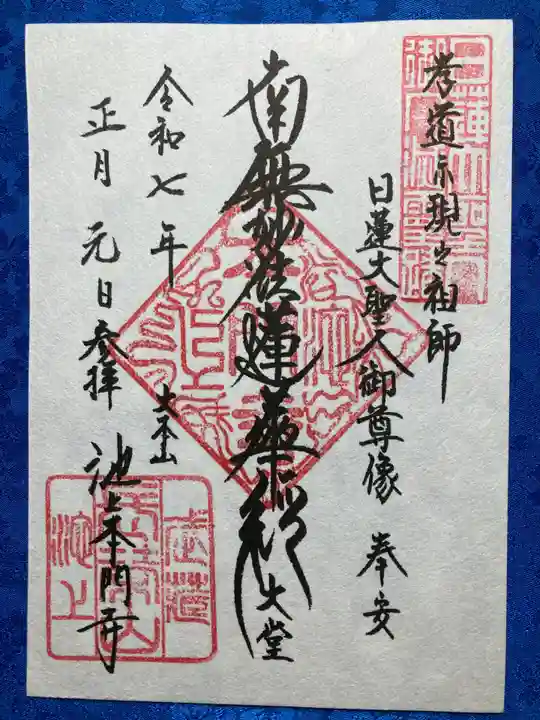 孝道示現之祖師
日蓮大聖人御尊像 奉安
南無妙法蓮華経
大堂
令和七年
正月元日参拝
大本山
池上本門寺